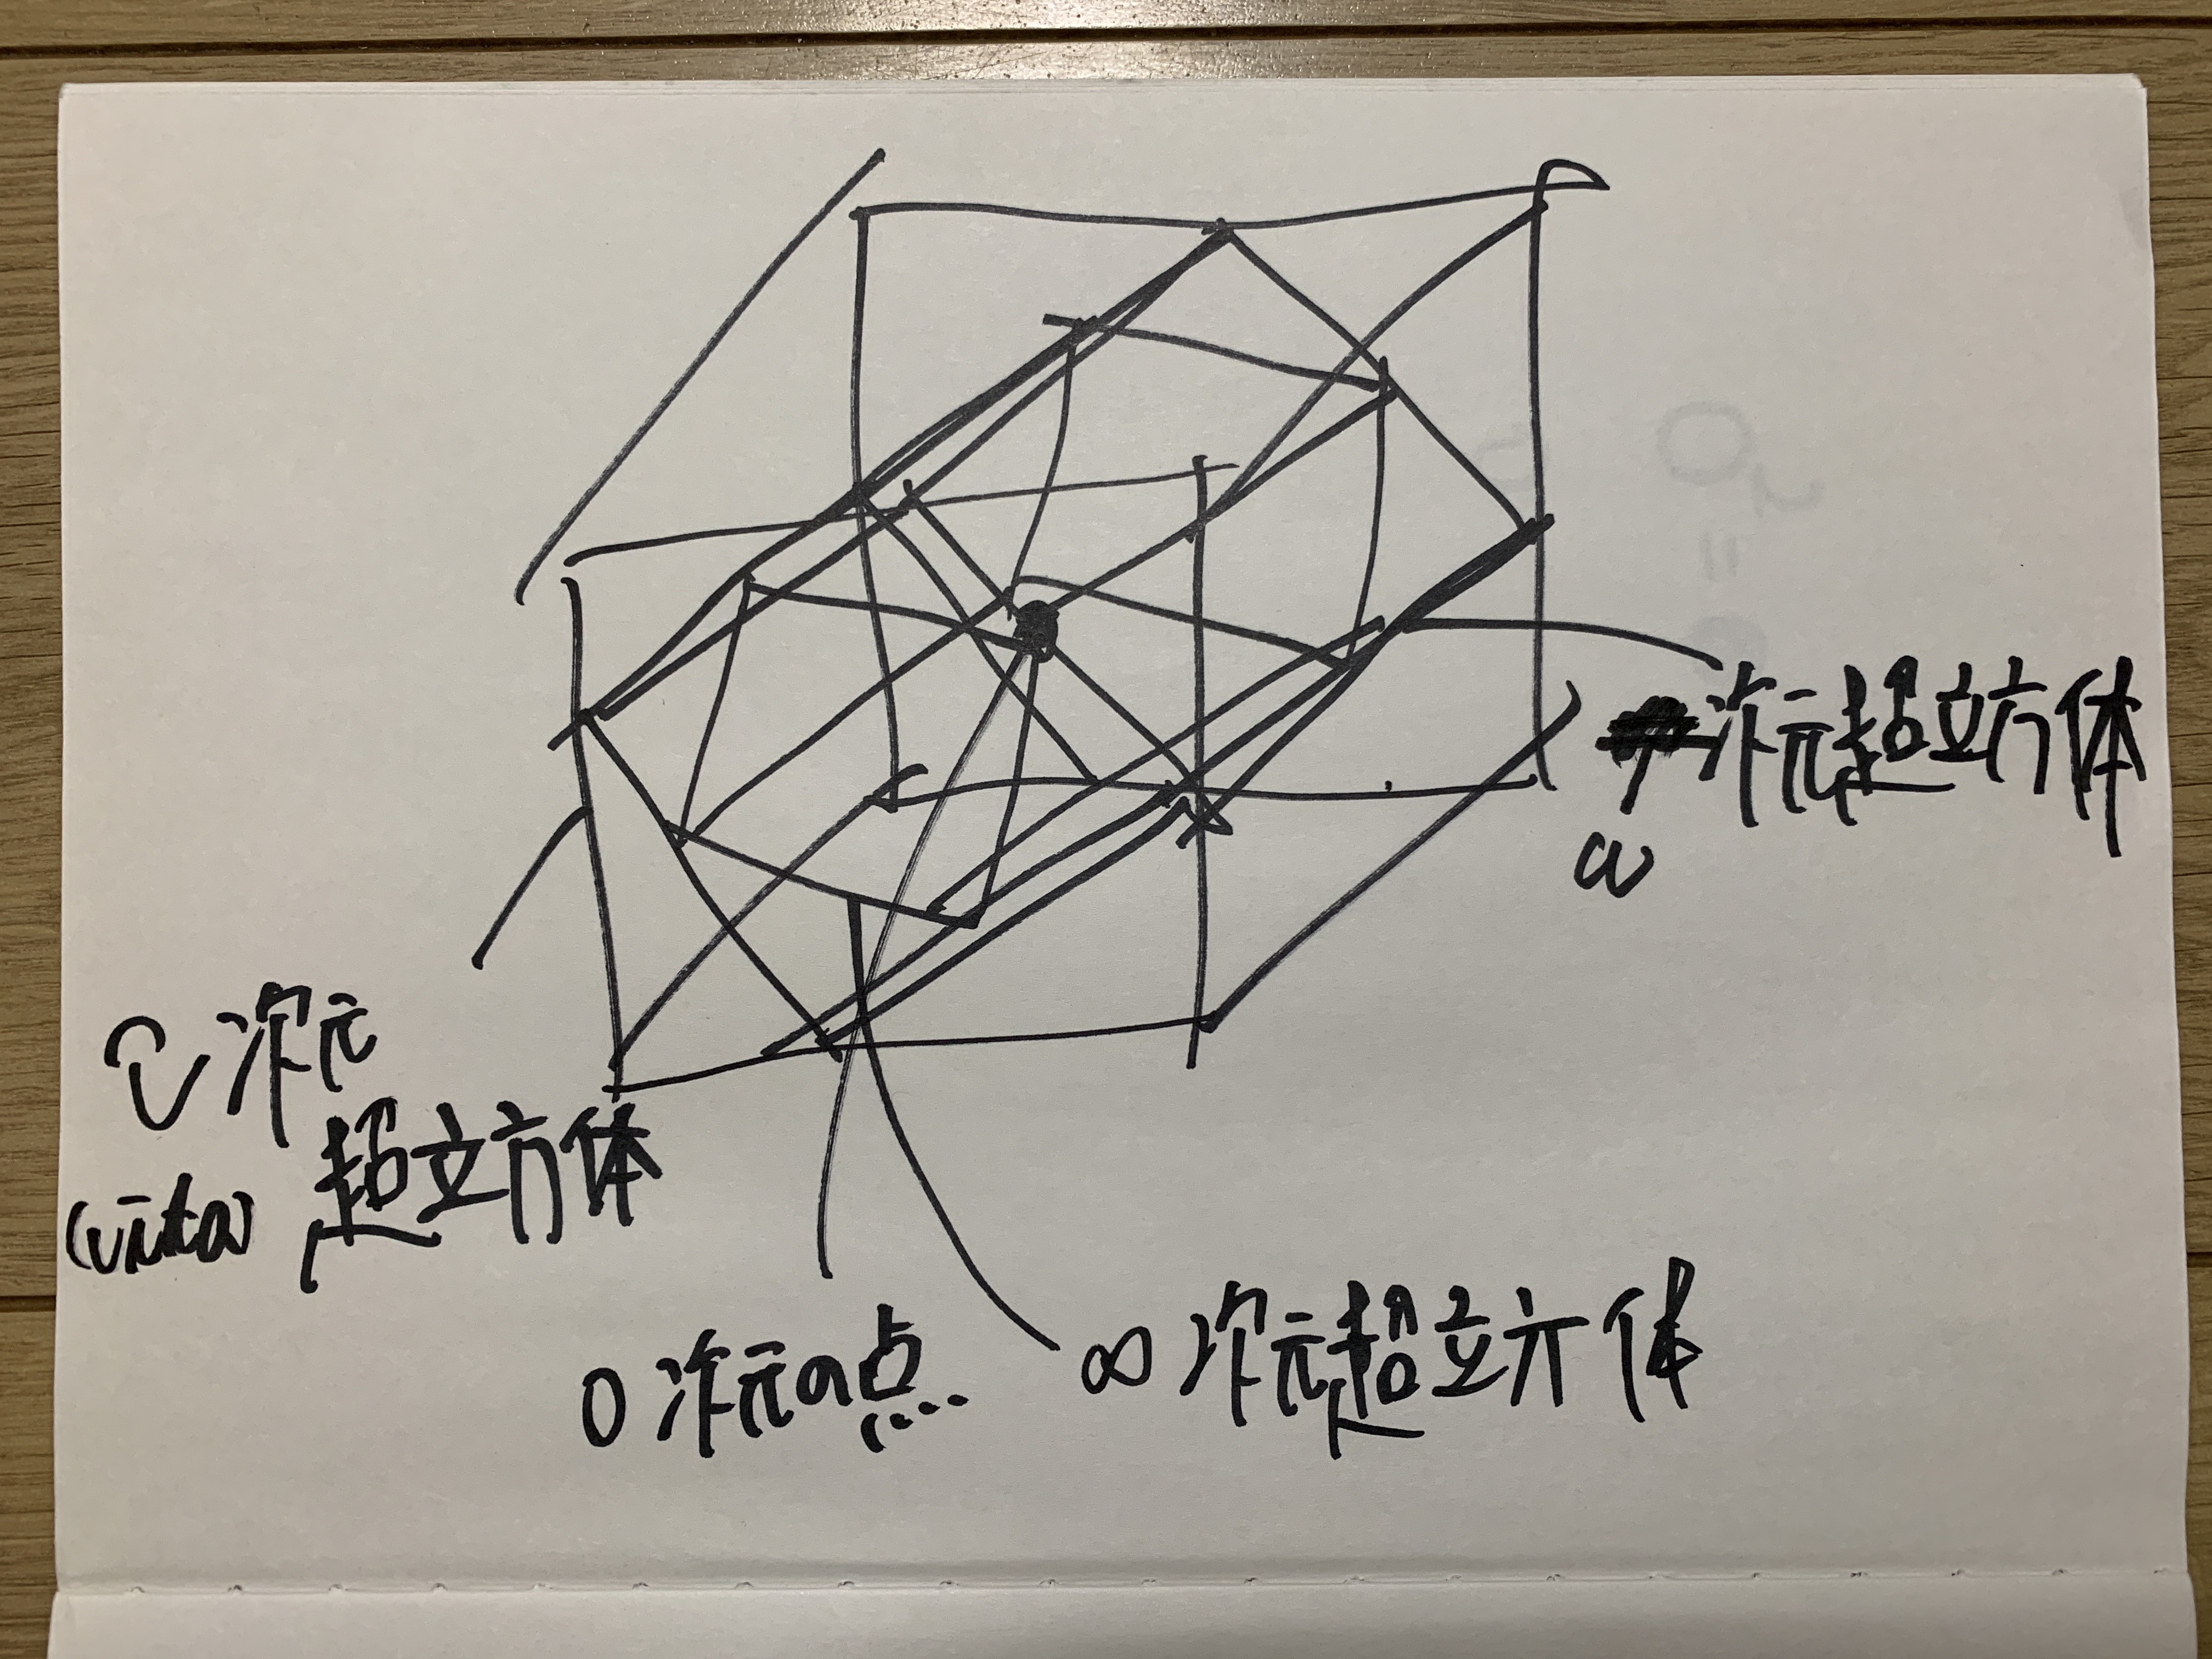 次元超立方体
ω
次元
超立方体
(vita)
0次元の点...
∞次元超立方体